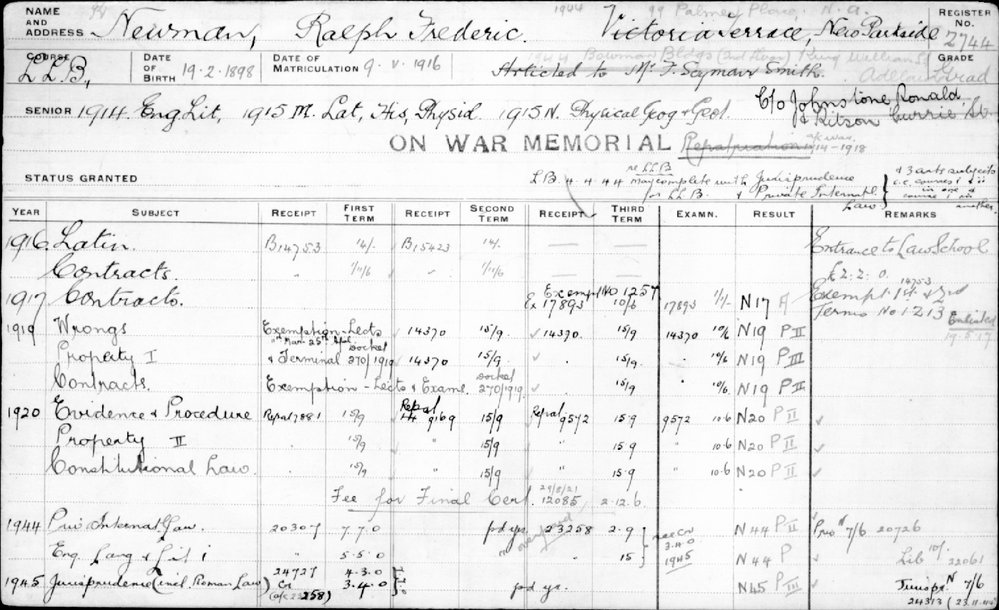 NAME AND ADDRESS Newman, Ralph Frederic. Victoria Terrace, New Parkside REGISTER No. 2744
1944 99 Palmer Place, N.A.
COURSE LL.B, DATE OF BIRTH 19-2-1898 DATE OF MATRICULATION 9-V-1916 Articled to Mr F. Seymour Smith. GRADE Grad
1944 Bowman Bldgs (2nd floor) King William St Adelaide
SENIOR 1914 Eng Lit, 1915 M. Lat, His, Physiol. 1915 N. Physical Geog & Geol. C/o Johnstone, Ronald,
& Ritson Currie St.
ON WAR MEMORIAL Repatriation 1914-1918
STATUS GRANTED LB 4.4.44 re LLB may complete with Jurisprudence & 3 arts subjects
for LL.B & Private Internatl. Law i.e. courses i & ii
in one & course i in another.
YEAR SUBJECT RECEIPT FIRST TERM RECEIPT SECOND TERM RECEIPT THIRD TERM EXAMN. RESULT REMARKS
1916 Latin. B14753 14/- B15423 14/- — — — — Entrance to Law School
Contracts. " 1/11/6 " 1/11/6 £2.2.0. 14753
1917 Contracts. Exempt No 1257 Ex 17893 10/6 17893 1/1/- N17 A Exempt 1st & 2nd Terms No 1213 Enlisted 19.5.17
1919 Wrongs Exemption-Lects 14370 15/9 14370. 15/9 14370 10/6 N19 P II
Property I & Terminal Docket 270/1919 14370 15/9 " 15/9 " 10/6 N19 P III
Contracts. Exemption - Lects & Exams. Docket 270/1919. 15/9 " 10/6. N19 P II
1920 Evidence & Procedure Repat 7881 15/9 Repat 9169 15/9 Repat 9572 15.9 9572 10.6 N20 P II
Property II " 15/9 " 15/9 " 15.9 " 10.6 N20 P II
Constitutional Law. " 15/9 15/9 " 15.9 " 10.6 N20 P II
Fee for Final Cert. 29/8/21 12085, 2.12.6
1944 Priv. Internat. Law. 20307 7.7.0 pd yr. 23258 2.9 see Cr 3.4.0 1945 N44 P II Priv N 7/6 20726
Eng. Lang & Lit i " 5.5.0 15 N44 P Lib 10/- 22061
1945 Jurisprudence (incl. Roman Law) 24727 4.3.0 Cr (o/c 23258) 3.4.0 pd yr. N45 P III Jurisp. N 7/6
24313 (23.11.45)